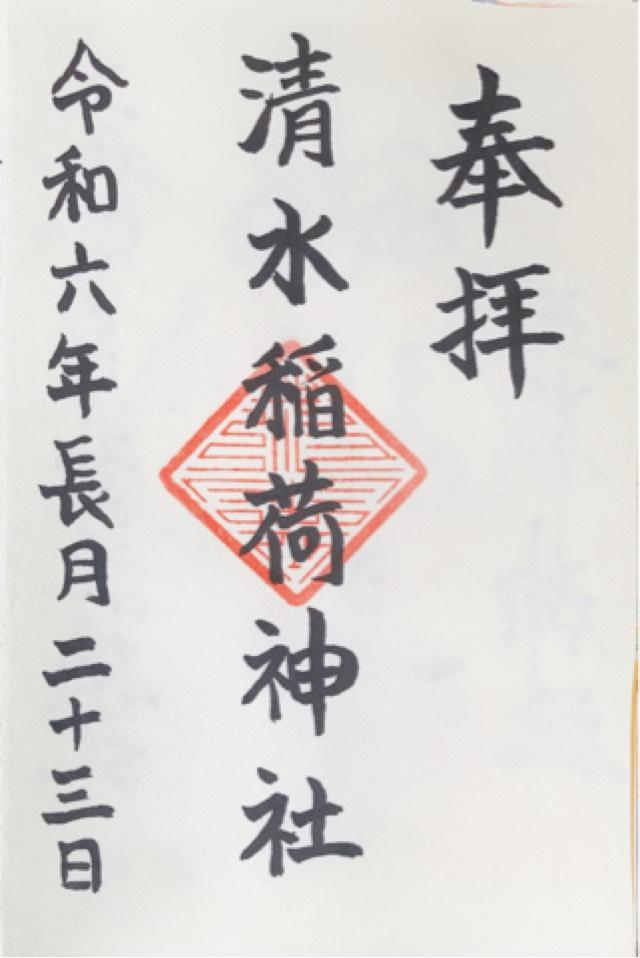 奉拝
清水稲荷神社
令和六年長月二十三日